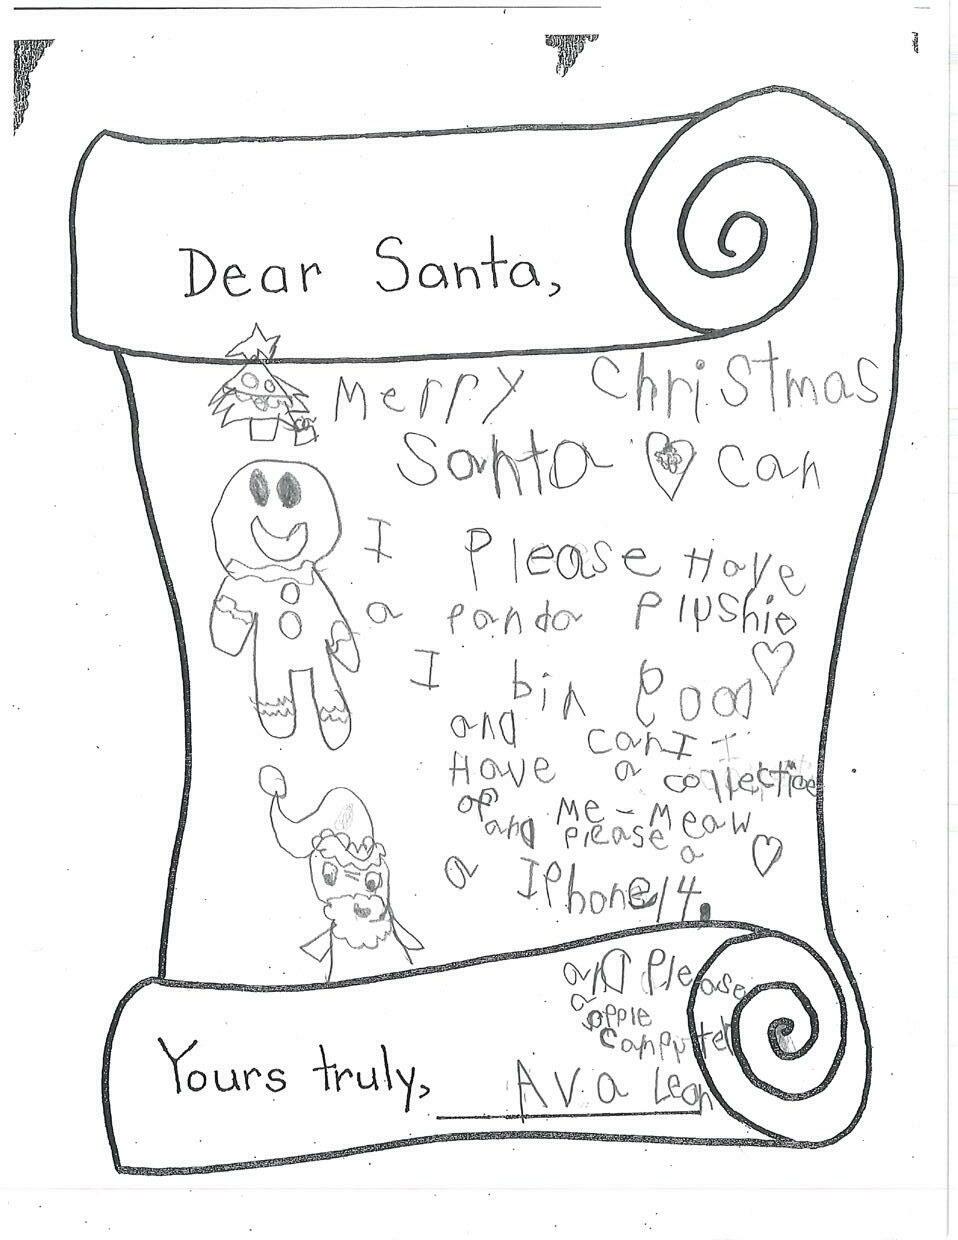 Dear Santa,
Merry Christmas
Santa can
I Please Have
a panda Plushie
I bin Good
and can I I
Have a collectioe
of Me-Meaw
and please a
a IPhone 14.
and Please
a apple
Compputer
Yours truly, Ava Leon